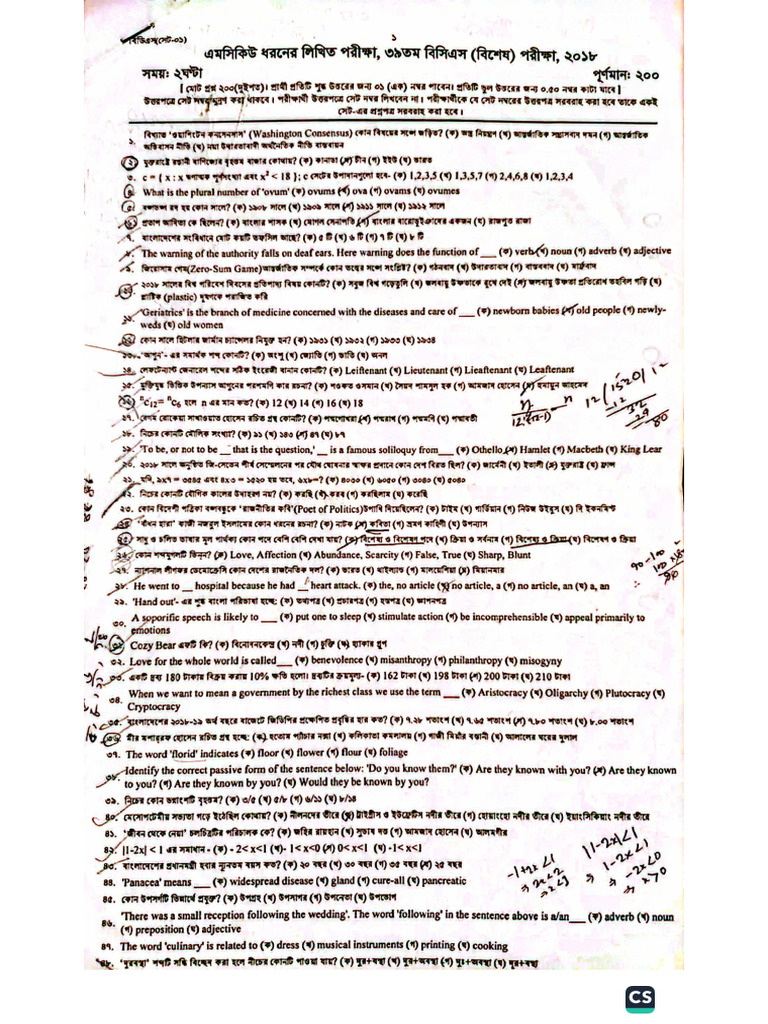 ১
এমসিকিউ ধরনের লিখিত পরীক্ষা, ৩৯তম বিসিএস (বিশেষ) পরীক্ষা, ২০১৮
সময়: ২ঘন্টা পূর্ণমান: ২০০
[ মোট প্রশ্ন ২০০(দুইশত)। প্রার্থী প্রতিটি শুদ্ধ উত্তরের জন্য ০১ (এক) নম্বর পাবেন। প্রতিটি ভুল উত্তরের জন্য ০.৫০ নম্বর কাটা যাবে।
উত্তরপত্রে সেট নম্বর মুদ্রণ করা থাকবে। পরীক্ষার্থী উত্তরপত্রে সেট নম্বর লিখবেন না। পরীক্ষার্থীকে যে সেট নম্বরের উত্তরপত্র সরবরাহ করা হবে তাকে একই
সেট-এর প্রশ্নপত্র সরবরাহ করা হবে।
১. বিখ্যাত 'ওয়াশিংটন কনসেনসাস' (Washington Consensus) কোন বিষয়ের সঙ্গে জড়িত? (ক) অস্ত্র নিয়ন্ত্রণ (খ) আন্তর্জাতিক সন্ত্রাসবাদ দমন (গ) আন্তর্জাতিক
অভিবাসন নীতি (ঘ) নয়া উদারতাবাদী অর্থনৈতিক নীতি বাস্তবায়ন
২. যুক্তরাষ্ট্রে রপ্তানী বাণিজ্যের বৃহত্তম বাজার কোথায়? (ক) কানাডা (খ) চীন (গ) ইইউ (ঘ) ভারত
৩. c = { x : x ঋণাত্মক পূর্ণসংখ্যা এবং x² < 18 }; c সেটের উপাদানগুলো হবে- (ক) 1,2,3,5 (খ) 1,3,5,7 (গ) 2,4,6,8 (ঘ) 1,2,3,4
৪. What is the plural number of 'ovum' (ক) ovums (খ) ova (গ) ovams (ঘ) ovumes
৫. বঙ্গভঙ্গ রদ হয় কোন সালে? (ক) ১৯০৮ সালে (খ) ১৯০৯ সালে (গ) ১৯১১ সালে (ঘ) ১৯১২ সালে
৬. প্রতাপ আদিত্য কে ছিলেন? (ক) বাংলার শাসক (খ) মোগল সেনাপতি (গ) বাংলার বারোভুঁইঞাদের একজন (ঘ) রাজপুত রাজা
৭. বাংলাদেশের সংবিধানে মোট কয়টি তফসিল আছে? (ক) ৫ টি (খ) ৬ টি (গ) ৭ টি (ঘ) ৮ টি
৮. The warning of the authority falls on deaf ears. Here warning does the function of ___ (ক) verb (খ) noun (গ) adverb (ঘ) adjective
৯. জিরোসাম গেম(Zero-Sum Game)আন্তর্জাতিক সম্পর্কে কোন তত্ত্বের সঙ্গে সংশ্লিষ্ট? (ক) গঠনবাদ (খ) উদারতাবাদ (গ) বাস্তববাদ (ঘ) মার্ক্সবাদ
১০. ২০১৮ সালের বিশ্ব পরিবেশ দিবসের প্রতিপাদ্য বিষয় কোনটি? (ক) সবুজ বিশ্ব গড়েতুলি (খ) জলবায়ু উষ্ণতাকে রুখে দেই (গ) জলবায়ু উষ্ণতা প্রতিরোধ তহবিল গড়ি (ঘ)
প্লাস্টিক (plastic) দূষণকে পরাজিত করি
১১. 'Geriatrics' is the branch of medicine concerned with the diseases and care of ___ (ক) newborn babies (খ) old people (গ) newly-
weds (ঘ) old women
১২. কোন সালে হিটলার জার্মান চ্যান্সেলর নিযুক্ত হন? (ক) ১৯৩১ (খ) ১৯৩২ (গ) ১৯৩৩ (ঘ) ১৯৩৪
১৩. 'আগুন'- এর সমার্থক শব্দ কোনটি? (ক) অংশু (খ) জ্যোতি (গ) ভাতি (ঘ) অনল
১৪. লেফটেন্যান্ট জেনারেল শব্দের সঠিক ইংরেজী বানান কোনটি? (ক) Leiftenant (খ) Lieutenant (গ) Lieaftenant (ঘ) Leaftenant
১৫. মুক্তিযুদ্ধ ভিত্তিক উপন্যাস আগুনের পরশমণি কার রচনা? (ক) শওকত ওসমান (খ) সৈয়দ শামসুল হক (গ) আমজাদ হোসেন (ঘ) হুমায়ূন আহমেদ
১৬. ⁿC₁₂= ⁿC₆ হলে n এর মান কত? (ক) 12 (খ) 14 (গ) 16 (ঘ) 18
১৭. বেগম রোকেয়া সাখাওয়াত হোসেন রচিত গ্রন্থ কোনটি? (ক) পদ্মগোখরা (খ) পদ্মরাগ (গ) পদ্মমণি (ঘ) পদ্মাবতী
১৮. নিচের কোনটি মৌলিক সংখ্যা? (ক) ৯১ (খ) ১৪৩ (গ) ৪৭ (ঘ) ৮৭
১৯. 'To be, or not to be __ that is the question,' __ is a famous soliloquy from___ (ক) Othello (খ) Hamlet (গ) Macbeth (ঘ) King Lear
২০. ২০১৮ সালে অনুষ্ঠিত জি-সেভেন শীর্ষ সম্মেলনের পর যৌথ ঘোষনার স্বাক্ষর প্রদানে কোন দেশ বিরত ছিল? (ক) জার্মেনী (খ) ইতালী (গ) যুক্তরাষ্ট্র (ঘ) ফ্রান্স
২১. যদি, ২x৭ = ৩৫৪৫ এবং ৪x৩ = ১৫২০ হয় তবে, ৬x৮=? (ক) ৪০৩০ (খ) ৬০৫০ (গ) ৩০৪০ (ঘ) ৫০৪০
২২. নিচের কোনটি যৌগিক কালের উদাহরণ নয়? (ক) করছি (খ) করব (গ) করছিলাম (ঘ) করেছি
২৩. কোন বিদেশী পত্রিকা বঙ্গবন্ধুকে 'রাজনীতির কবি'(Poet of Politics)উপাধি দিয়েছিলেন? (ক) টাইম (খ) গার্ডিয়ান (গ) নিউজ উইকস (ঘ) দি ইকনমিস্ট
২৪. 'বাঁধন হারা' কাজী নজরুল ইসলামের কোন ধরনের রচনা? (ক) নাটক (খ) কবিতা (গ) ভ্রমণ কাহিনী (ঘ) উপন্যাস
২৫. সাধু ও চলিত ভাষার মূল পার্থক্য কোন পদে বেশি বেশি দেখা যায়? (ক) বিশেষ্য ও বিশেষণ পদে (খ) ক্রিয়া ও সর্বনাম (গ) বিশেষ্য ও ক্রিয়া (ঘ) বিশেষণ ও ক্রিয়া
২৬. কোন শব্দযুগলটি ভিন্ন? (ক) Love, Affection (খ) Abundance, Scarcity (গ) False, True (ঘ) Sharp, Blunt
২৭. ন্যাশনাল লীগফর ডেমোক্রেসি কোন দেশের রাজনৈতিক দল? (ক) ভারত (খ) থাইল্যান্ড (গ) মালয়েশিয়া (ঘ) মিয়ানমার
২৮. He went to __ hospital because he had __ heart attack. (ক) the, no article (খ) no article, a (গ) no article, an (ঘ) a, an
২৯. 'Hand out'- এর শুদ্ধ বাংলা পরিভাষা হচ্ছে: (ক) তথ্যপত্র (খ) প্রচারপত্র (গ) হস্তপত্র (ঘ) জ্ঞাপনপত্র
৩০. A soporific speech is likely to ___ (ক) put one to sleep (খ) stimulate action (গ) be incomprehensible (ঘ) appeal primarily to
emotions
৩১. Cozy Bear একটি কি? (ক) বিনোদনকেন্দ্র (খ) নদী (গ) চুক্তি (ঘ) হ্যাকার গ্রুপ
৩২. Love for the whole world is called___ (ক) benevolence (খ) misanthropy (গ) philanthropy (ঘ) misogyny
৩৩. একটি দ্রব্য 180 টাকায় বিক্রয় করায় 10% ক্ষতি হলো। দ্রব্যটির ক্রয়মূল্য- (ক) 162 টাকা (খ) 198 টাকা (গ) 200 টাকা (ঘ) 210 টাকা
৩৪. When we want to mean a government by the richest class we use the term ___ (ক) Aristocracy (খ) Oligarchy (গ) Plutocracy (ঘ)
Cryptocracy
৩৫. বাংলাদেশের ২০১৮-১৯ অর্থ বছরে বাজেটে জিডিপির প্রক্ষেপিত প্রবৃদ্ধির হার কত? (ক) ৭.২৮ শতাংশ (খ) ৭.৬৫ শতাংশ (গ) ৭.৮০ শতাংশ (ঘ) ৮.০০ শতাংশ
৩৬. মীর মশাররফ হোসেন রচিত গ্রন্থ হচ্ছে: (ক) হুতোম প্যাঁচার নক্সা (খ) কলিকাতা কমলালয় (গ) গাজী মিয়াঁর বস্তানী (ঘ) আলালের ঘরের দুলাল
৩৭. The word 'florid' indicates (ক) floor (খ) flower (গ) flour (ঘ) foliage
৩৮. Identify the correct passive form of the sentence below: 'Do you know them?' (ক) Are they known with you? (খ) Are they known
to you? (গ) Are they known by you? (ঘ) Would they be known by you?
৩৯. নিচের কোন ভগ্নাংশটি বৃহত্তম? (ক) ৩/৫ (খ) ৫/৮ (গ) ৬/১১ (ঘ) ৮/১৪
৪০. মেসোপটেমীয় সভ্যতা গড়ে ইঠেছিল কোথায়? (ক) নীলনদের তীরে (খ) ট্রাইগ্রীস ও ইউফ্রেটিস নদীর তীরে (গ) হোয়াংহো নদীর তীরে (ঘ) ইয়াংসিকিয়াং নদীর তীরে
৪১. 'জীবন থেকে নেয়া' চলচ্চিত্রটির পরিচালক কে? (ক) জহির রায়হান (খ) সুভাষ দত্ত (গ) আমজাদ হোসেন (ঘ) আলমগীর
৪২. |1-2x| < 1 এর সমাধান - (ক) - 2< x<1 (খ)- 1< x<0 (গ) 0< x<1 (ঘ) -1< x<1
৪৩. বাংলাদেশের প্রধানমন্ত্রী হবার ন্যূনতম বয়স কত? (ক) ২০ বছর (খ) ৩০ বছর (গ) ৩৫ বছর (ঘ) ২৫ বছর
৪৪. 'Panacea' means ___ (ক) widespread disease (খ) gland (গ) cure-all (ঘ) pancreatic
৪৫. কোন উপসর্গটি ভিন্নার্থে প্রযুক্ত? (ক) উপগ্রহ (খ) উপসাগর (গ) উপনেতা (ঘ) উপভোগ
৪৬. 'There was a small reception following the wedding'. The word 'following' in the sentence above is a/an___ (ক) adverb (খ) noun
(গ) preposition (ঘ) adjective
৪৭. The word 'culinary' is related to (ক) dress (খ) musical instruments (গ) printing (ঘ) cooking
৪৮. 'দুরবস্থা' শব্দটি সন্ধি বিচ্ছেদ করা হলে নীচের কোনটি পাওয়া যায়? (ক) দুর+বস্থা (খ) দুর+অবস্থা (গ) দুঃ+অবস্থা (ঘ) দুর+বস্থা
CS